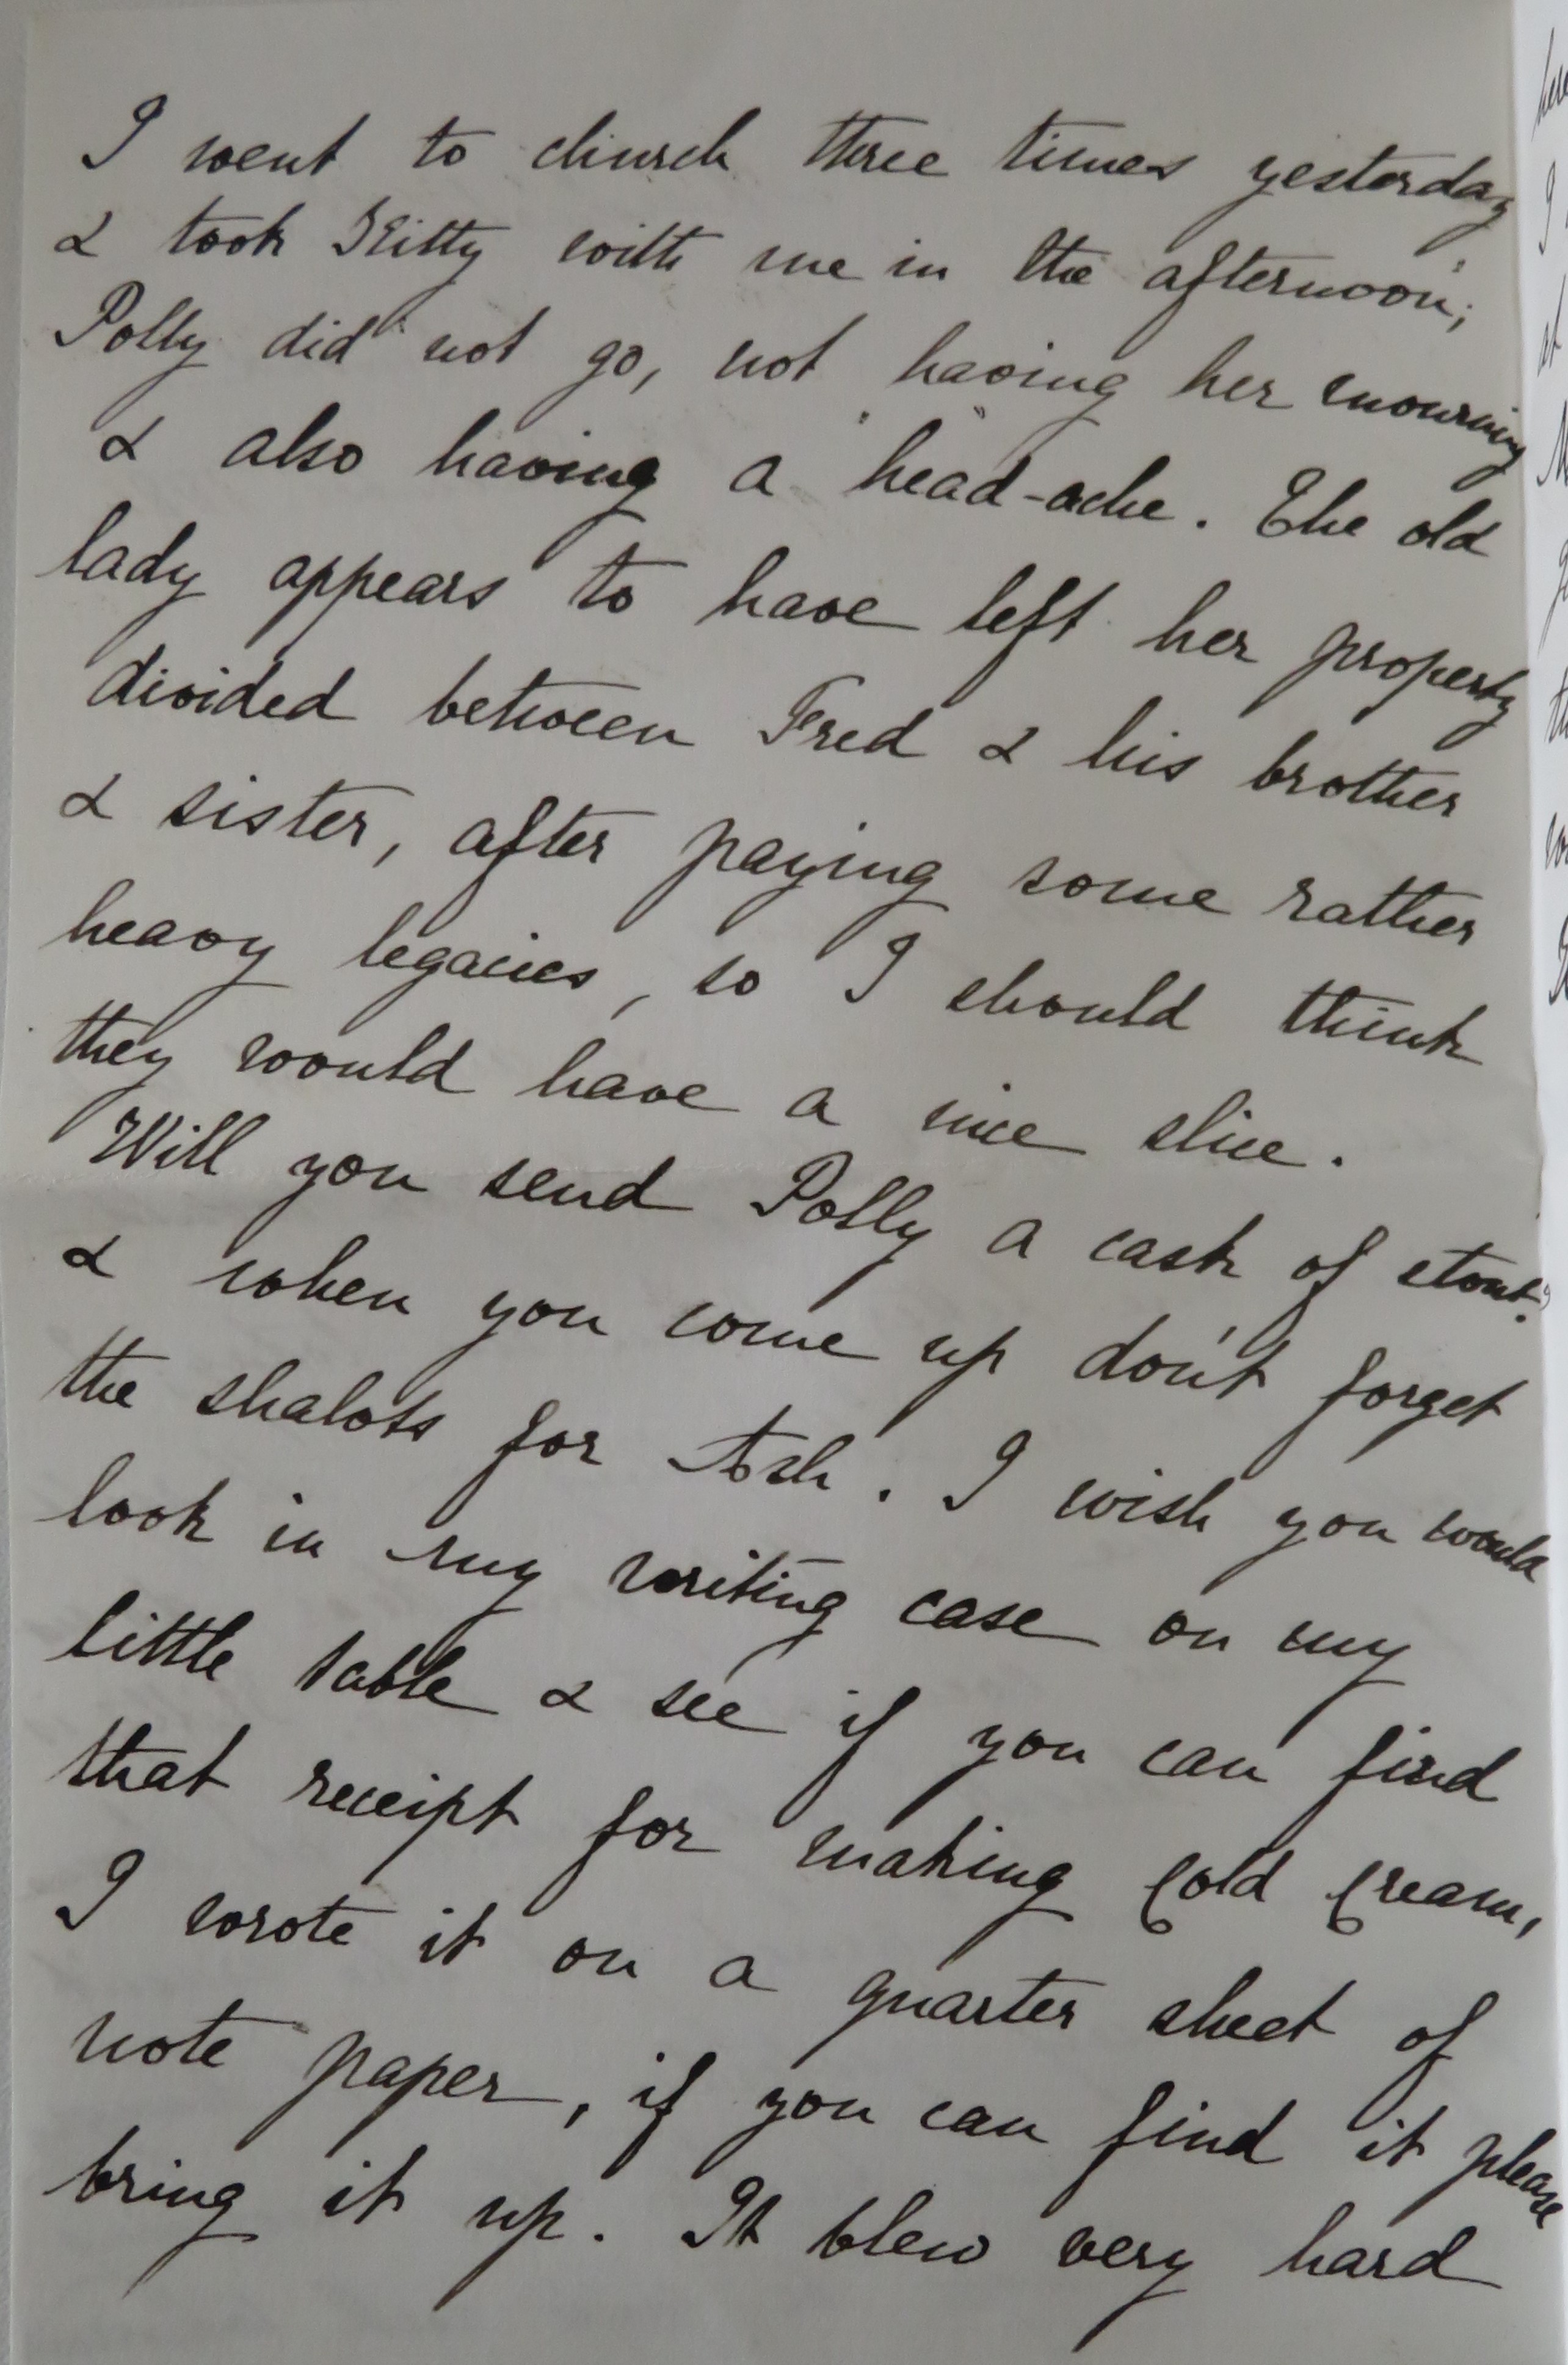 I went to church three times yesterday
& took Kitty with me in the afternoon;
Polly did not go, not having her mourning
& also having a head-ache. The old
lady appears to have left her property
divided between Fred & his brother
& sister, after paying some rather
heavy legacies, so I should think
they would have a nice slice.
Will you send Polly a cask of stout?
& when you come up don't forget
the shalots for Ash. I wish you would
look in my writing case on my
little table & see if you can find
that receipt for making Cold Cream,
I wrote it on a quarter sheet of
note paper, if you can find it please
bring it up. It blew very hard